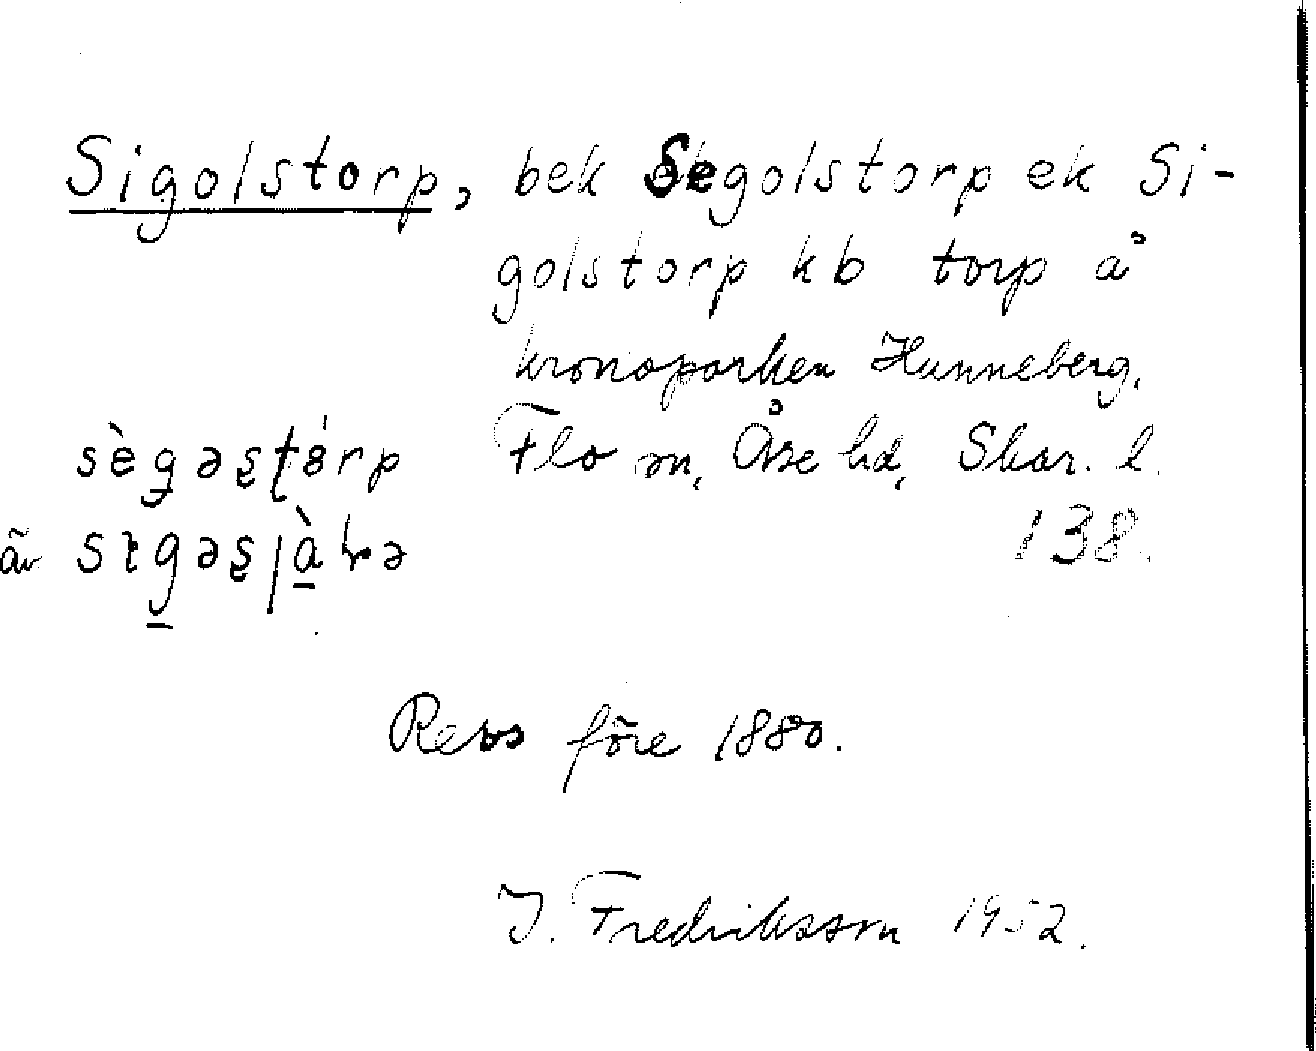 Sigolstorp, bek Segolstorp ek Si-
golstorp kb torp å
kronoparken Hunneberg,
sègəʂʈɵ́rp Flo sn, Åse hd, Skar. l.
äv 138.
Revs före 1880.
J. Fredriksson 1952.